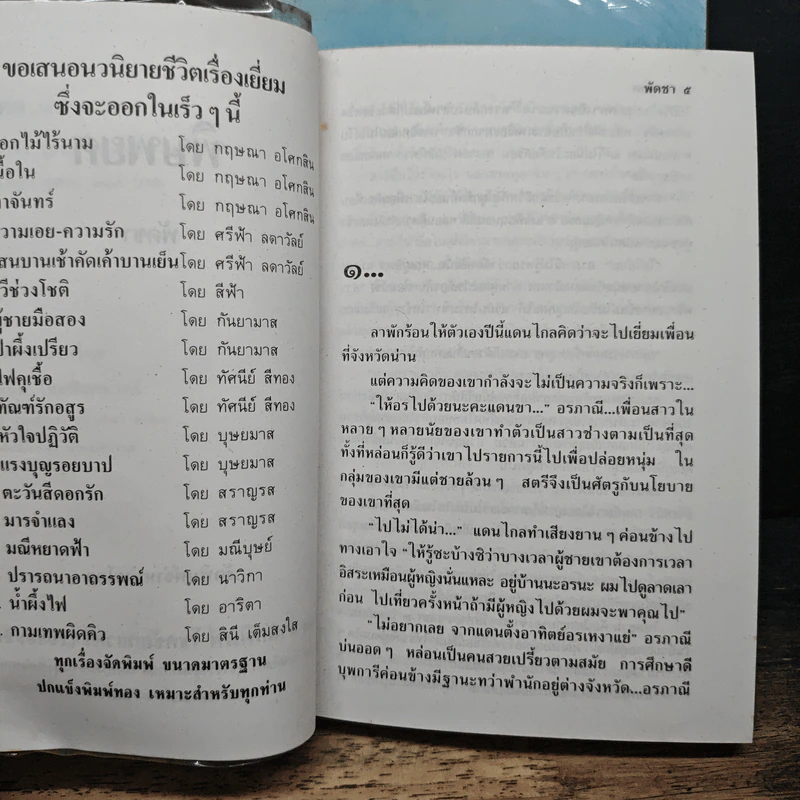 ขอเสนอนวนิยายชีวิตเรื่องเยี่ยม
ซึ่งจะออกในเร็ว ๆ นี้
อกไม้ไร้นาม โดย กฤษณา อโศกสิน
นื้อใน โดย กฤษณา อโศกสิน
าจันทร์ โดย กฤษณา อโศกสิน
วามเอย-ความรัก โดย ศรีฟ้า ลดาวัลย์
สนบานเช้าคัดเค้าบานเย็น โดย ศรีฟ้า ลดาวัลย์
วีช่วงโชติ โดย สีฟ้า
ผู้ชายมือสอง โดย กันยามาส
ป่าผึ้งเปรียว โดย กันยามาส
ไฟคุเชื้อ โดย ทัศนีย์ สีทอง
ทัณฑ์รักอสูร โดย ทัศนีย์ สีทอง
หัวใจปฏิวัติ โดย บุษยมาส
แรงบุญรอยบาป โดย บุษยมาส
ตะวันสีดอกรัก โดย สราญรส
มารจำแลง โดย สราญรส
มณีหยาดฟ้า โดย มณีบุษย์
ปรารถนาอาถรรพณ์ โดย นาวิกา
น้ำผึ้งไฟ โดย อาริตา
. กามเทพผิดคิว โดย สินี เต็มสงใส
ทุกเรื่องจัดพิมพ์ ขนาดมาตรฐาน
ปกแข็งพิมพ์ทอง เหมาะสำหรับทุกท่าน
พัดชา ๕
๑...
ลาพักร้อนให้ตัวเองปีนี้แดนไกลคิดว่าจะไปเยี่ยมเพื่อน
ที่จังหวัดน่าน
แต่ความคิดของเขากำลังจะไม่เป็นความจริงก็เพราะ...
“ให้อรไปด้วยนะคะแดนขา...” อรภาณี...เพื่อนสาวใน
หลาย ๆ หลายนัยของเขาทำตัวเป็นสาวช่างตามเป็นที่สุด
ทั้งที่หล่อนก็รู้ดีว่าเขาไปรายการนี้ไปเพื่อปล่อยหนุ่ม ใน
กลุ่มของเขามีแต่ชายล้วน ๆ สตรีจึงเป็นศัตรูกับนโยบาย
ของเขาที่สุด
“ไปไม่ได้น่า...” แดนไกลทำเสียงยาน ๆ ค่อนข้างไป
ทางเอาใจ “ให้รู้ซะบ้างซิว่าบางเวลาผู้ชายเขาต้องการเวลา
อิสระเหมือนผู้หญิงนั่นแหละ อยู่บ้านนะอรนะ ผมไปดูลาดเลา
ก่อน ไปเที่ยวครั้งหน้าถ้ามีผู้หญิงไปด้วยผมจะพาคุณไป”
“ไม่อยากเลย จากแดนตั้งอาทิตย์อรเหงาแย่” อรภาณี
บ่นออด ๆ หล่อนเป็นคนสวยเปรี้ยวตามสมัย การศึกษาดี
บุพการีค่อนข้างมีฐานะทว่าพำนักอยู่ต่างจังหวัด...อรภาณี